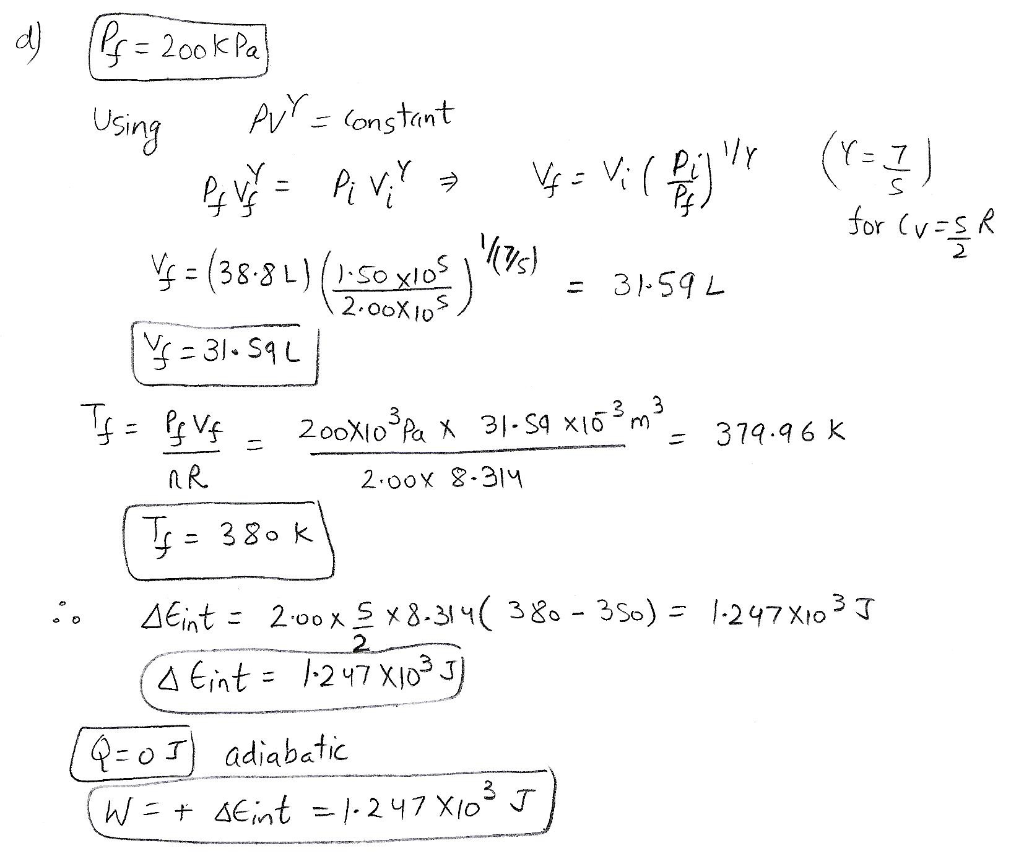 d) Pf = 200 kPa
Using PV^γ = constant
Pf Vf^γ = Pi Vi^γ ⇒ Vf = Vi (Pi/Pf)^1/γ (γ = 7/5)
for Cv = 5/2 R
Vf = (38.8 L) (1.50 x10^5 / 2.00X10^5)^1/(7/5) = 31.59 L
Vf = 31.59 L
Tf = Pf Vf / nR = 200X10^3 Pa X 31.59 X10^-3 m^3 / 2.00X 8.314 = 379.96 K
Tf = 380 K
∴ ΔEint = 2.00 x 5/2 X 8.314 (380 - 350) = 1.247 X10^3 J
Δ Eint = 1.247 X10^3 J
Q = 0 J adiabatic
W = + ΔEint = 1.247 X10^3 J